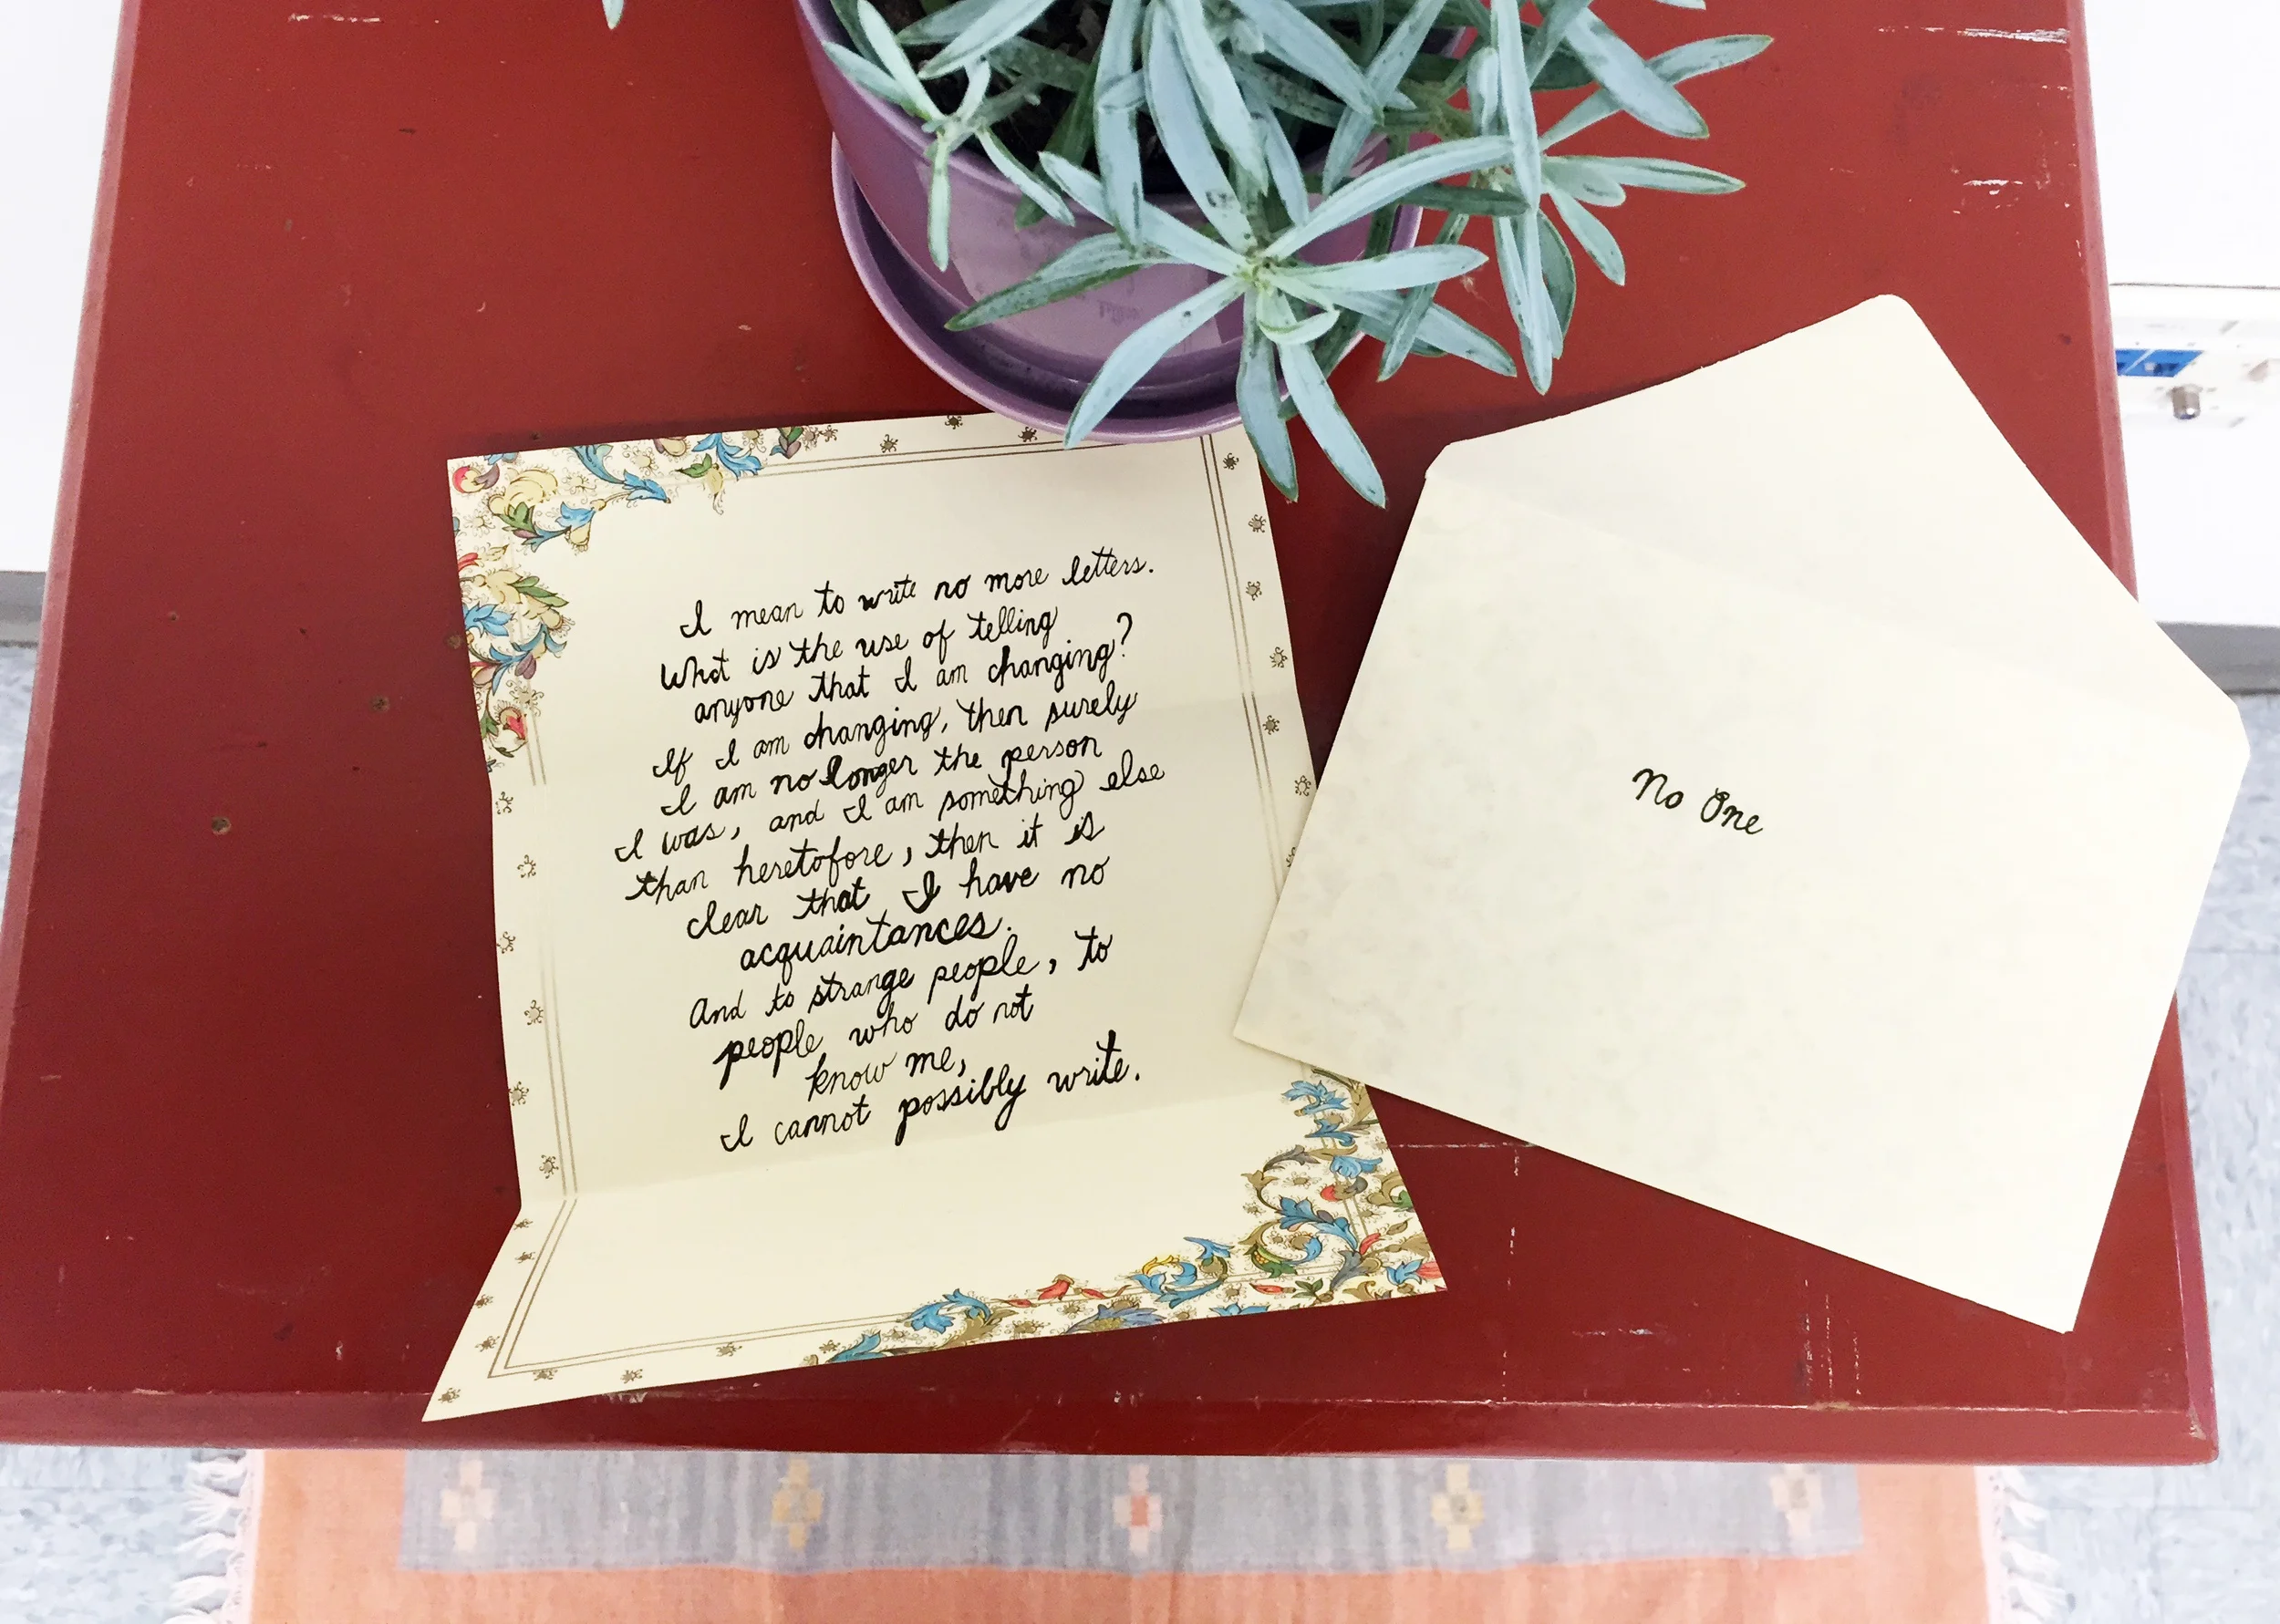 I mean to write no more letters.
What is the use of telling
anyone that I am changing?
If I am changing, then surely
I am no longer the person
I was, and I am something else
than heretofore, then it is
clear that I have no
acquaintances.
And to strange people, to
people who do not
know me,
I cannot possibly write.
No One